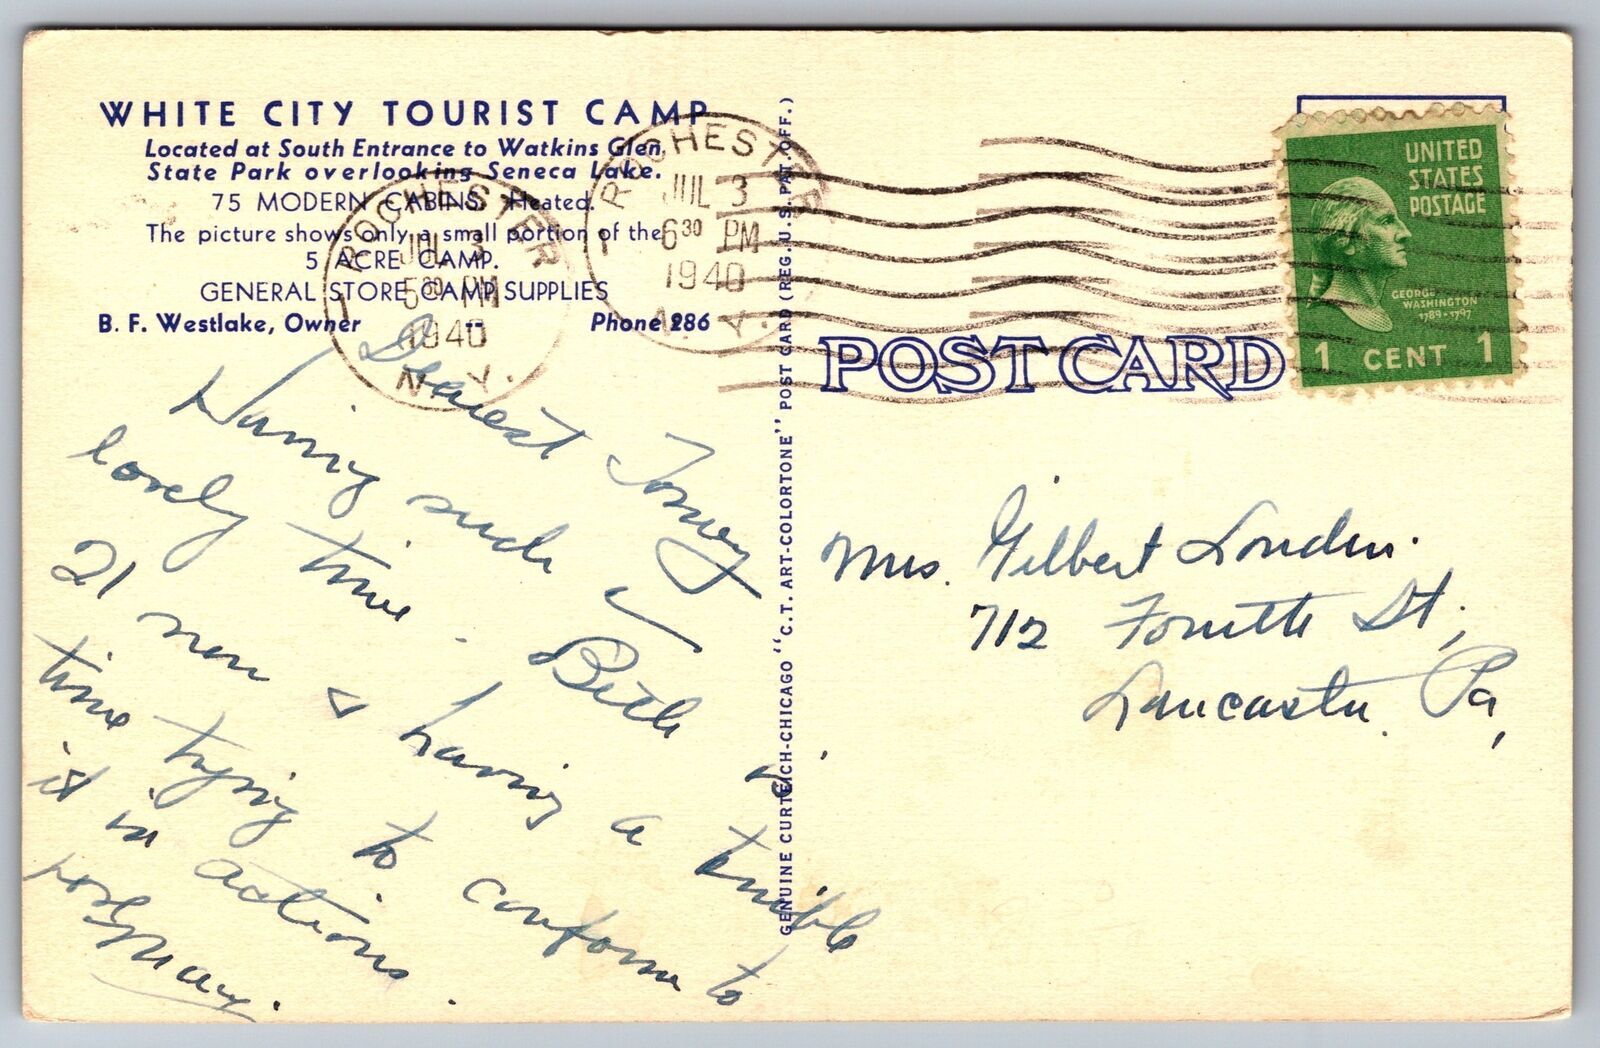 WHITE CITY TOURIST CAMP
Located at South Entrance to Watkins Glen,
State Park overlooking Seneca Lake.
75 MODERN CABINS. Heated.
The picture shows only a small portion of the
5 ACRE CAMP.
GENERAL STORE CAMP SUPPLIES
B. F. Westlake, Owner Phone 286
ROCHESTER
JUL 3
5 30 PM
1940
N. Y.
ROCHESTER
JUL 3
6 30 PM
1940
N. Y.
UNITED
STATES
POSTAGE
GEORGE
WASHINGTON
1789-1797
1 CENT 1
POST CARD
GENUINE CURTEICH-CHICAGO "C.T. ART-COLORTONE" POST CARD (REG. U.S. PAT. OFF.)
Dearest
Having such a
lovely time. Beth is
21 now & having a terrible
time trying to conform to
it in actions.
May.
Mrs. Gilbert London
712 Fourth St,
Lancaster Pa,